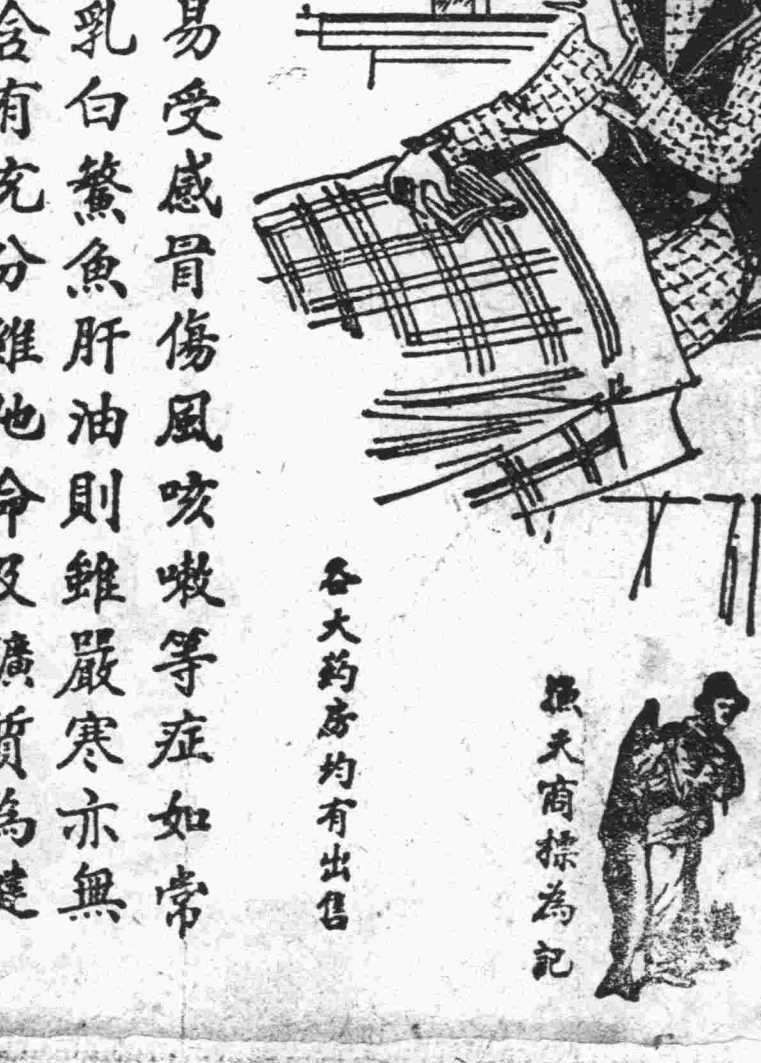 漁夫商標為記
各大药房均有出售
易受感冒傷風咳嗽等症如常
乳白鰵魚肝油則雖嚴寒亦無
含有充分維他命及礦質為健